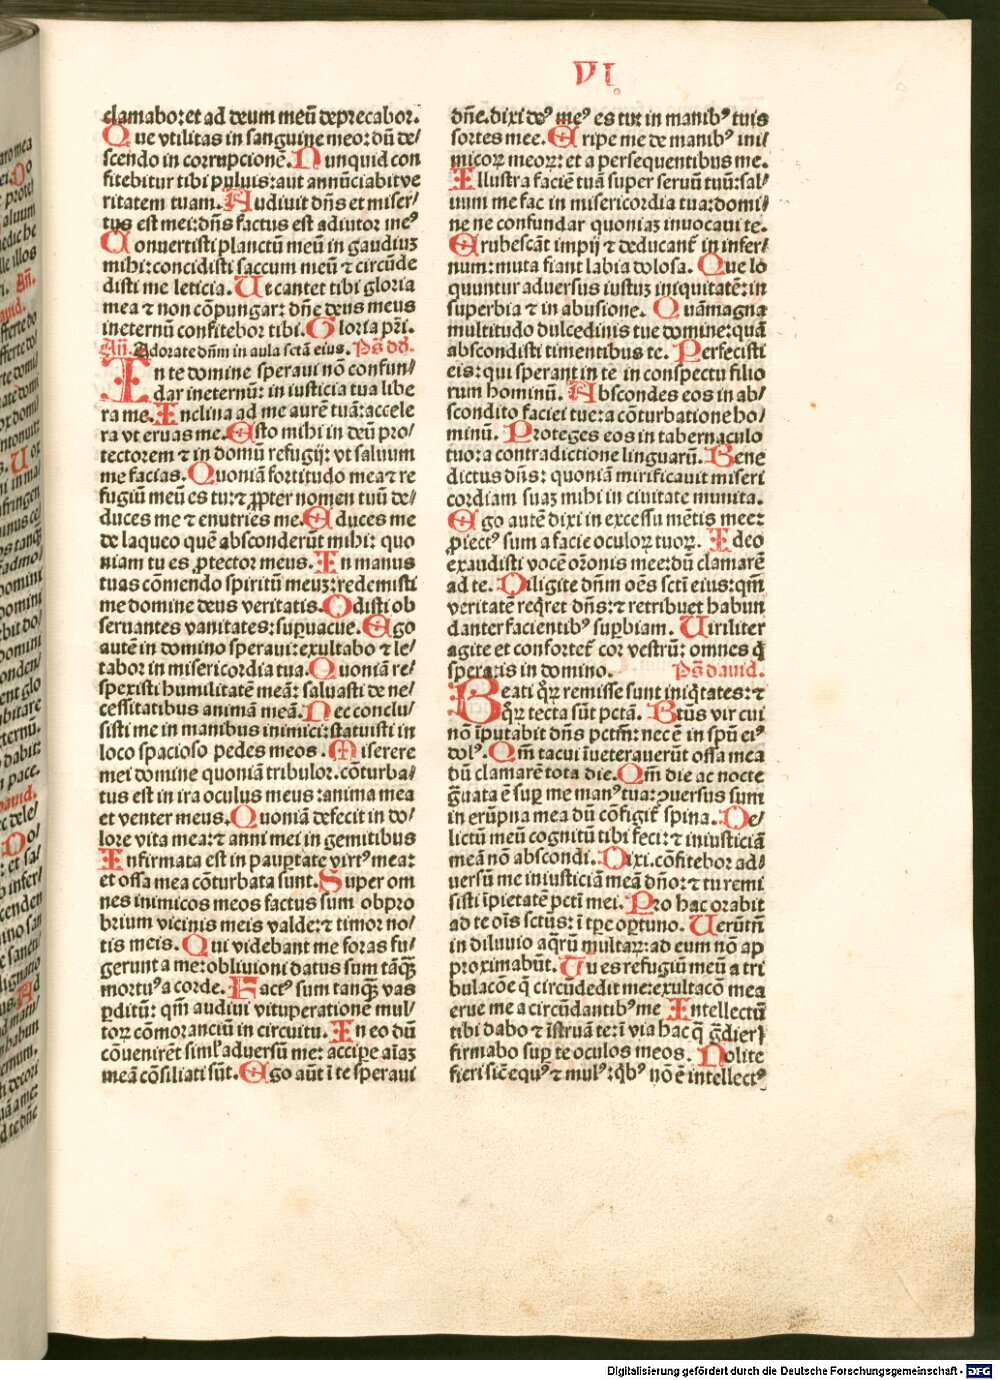 VI
clamabo: et ad deum meū deprecabor.
Que vtilitas in sanguine meo: dū de/
scendo in corrupcionē. Nunquid con
fitebitur tibi puluis: aut annūciabit ve
ritatem tuam. Audiuit dn̄s et miser/
tus est mei: dn̄s factus est adiutor meꝰ
Conuertisti planctū meū in gaudiuꝫ
mihi: concidisti saccum meū ⁊ circūde
disti me leticia. Ut cantet tibi gloria
mea ⁊ non cōpungar: dn̄e deus meus
in eternū confitebor tibi. Gloria pr̄i.
An̄. Adorate dn̄m in aula sctā eius. Ps̄ dd̄.
In te domine speraui nō confun/
dar in eternū: in iusticia tua libe
ra me. Inclina ad me aurē tuā: accele
ra vt eruas me. Esto mihi in deū pro/
tectorem ⁊ in domū refugij: vt saluum
me facias. Quoniā fortitudo mea ⁊ re
fugiū meū es tu: ⁊ ꝓpter nomen tuū de/
duces me ⁊ enutries me. Educes me
de laqueo quē absconderūt mihi: quo
niam tu es ꝓtector meus. In manus
tuas cōmendo spiritū meuꝫ: redemisti
me domine deus veritatis. Odisti ob
seruantes vanitates: suꝑuacue. Ego
autē in domino speraui: exultabo ⁊ le/
tabor in misericordia tua. Quoniā re/
spexisti humilitatē meā: saluasti de ne/
cessitatibus animā meā. Nec conclu/
sisti me in manibus inimici: statuisti in
loco spacioso pedes meos. Miserere
mei domine quoniā tribulor. cōturba/
tus est in ira oculus meus: anima mea
et venter meus. Quoniā defecit in do/
lore vita mea: ⁊ anni mei in gemitibus
Infirmata est in pauꝑtate virtꝰ mea:
et ossa mea cōturbata sunt. Super om
nes inimicos meos factus sum obpro
brium vicinis meis valde: ⁊ timor no/
tis meis. Qui videbant me foras fu/
gerunt a me: obliuioni datus sum tāqꝫ
mortuꝰ a corde. Factꝰ sum tanqꝫ vas
ꝑditū: qm̄ audiui vituperationē mul/
toꝝ cōmoranciū in circuitu. In eo dū
cōuenirēt simlꝰ aduersū me: acciꝑe aīaꝫ
meā cōsiliati sūt. Ego aūt ī te speraui
dn̄e. dixi deꝰ meꝰ es tu: in manibꝰ tuis
sortes mee. Eripe me de manibꝰ ini/
micoꝝ meoꝝ: et a persequentibus me.
Illustra faciē tuā super seruū tuū: sal/
uum me fac in misericordia tua: domi/
ne ne confundar quoniaꝫ inuocaui te.
Erubescāt impij ⁊ deducant᷑ in infer/
num: muta fiant labia dolosa. Que lo
quuntur aduersus iustuꝫ iniquitatē: in
superbia ⁊ in abusione. Quā magna
multitudo dulcedinis tue domine: quā
abscondisti timentibus te. Perfecisti
eis: qui sperant in te in conspectu filio
rum hominū. Abscondes eos in ab/
scondito faciei tue: a cōturbatione ho/
minū. Proteges eos in tabernaculo
tuo: a contradictione linguarū. Bene
dictus dn̄s: quoniā mirificauit miseri
cordiam suaꝫ mihi in ciuitate munita.
Ego autē dixi in excessu mētis mee:
ꝓiectꝰ sum a facie oculoꝝ tuoꝝ. Ideo
exaudisti vocē or̄onis mee: dū clamarē
ad te. Diligite dn̄m oēs sctī eius: qm̄
veritatē reqͥret dn̄s: ⁊ retribuet habun
danter facientibꝰ suꝑbiam. Uiriliter
agite et confortet᷑ cor vestrū: omnes qͥ
speratis in domino. Ps̄ dauid.
Beati qͦꝝ remisse sunt iniqͥtates: ⁊
qͦꝝ tecta sūt pctā. Btūs vir cui
nō īputabit dn̄s pctm̄: nec ē in spū eiꝰ
dolꝰ. Qm̄ tacui īueterauerūt ossa mea
dū clamarē tota die. Qm̄ die ac nocte
gͣuata ē suꝑ me manꝰ tua: ꝯuersus sum
in erūpna mea dū cōfigit᷑ spina. De/
lictū meū cognitū tibi feci: ⁊ iniusticiā
meā nō abscondi. Dixi. cōfitebor ad/
uersū me iniusticiā meā dn̄o: ⁊ tu remi
sisti īpietatē pctī mei. Pro hac orabit
ad te oīs sctūs: ī tp̄e oꝑtuno. Uerūtn̄
in diluuio aqͣrū multaꝝ: ad eum nō ap
proximabūt. Tu es refugiū meū a tri
bulacōe qͥ circūdedit me: exultacō mea
erue me a circūdantibꝰ me Intellectū
tibi dabo ⁊ īstruā te: ī via hac qͣ gͣdierꝭ
firmabo suꝑ te oculos meos. Nolite
fieri sic̄ equꝰ ⁊ mulꝰ: qͥbꝰ nō ē intellectꝰ
Digitalisierung gefördert durch die Deutsche Forschungsgemeinschaft - DFG